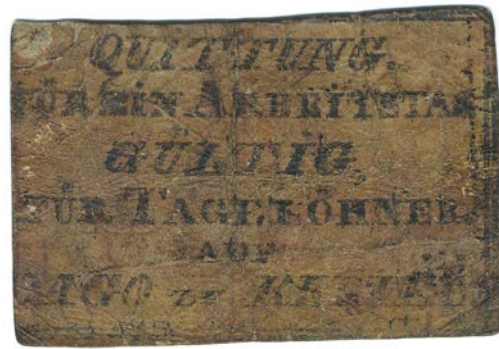 QUITTUNG.
FÜR EIN ARBEITSTAG
GÜLTIG,
FÜR TAGELÖHNER
AUF